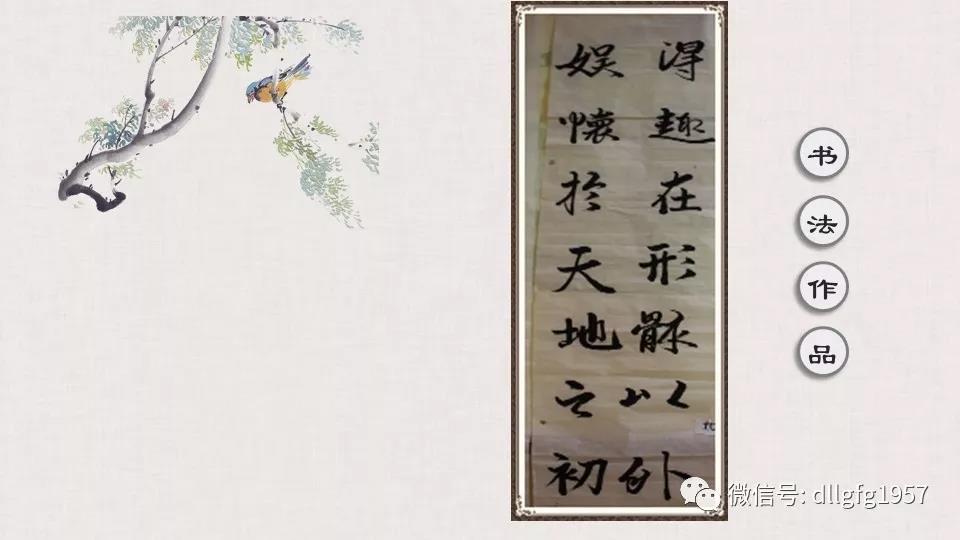 书法作品
得趣在形骸以外
娱懷於天地之初
微信号: dllgfg1957